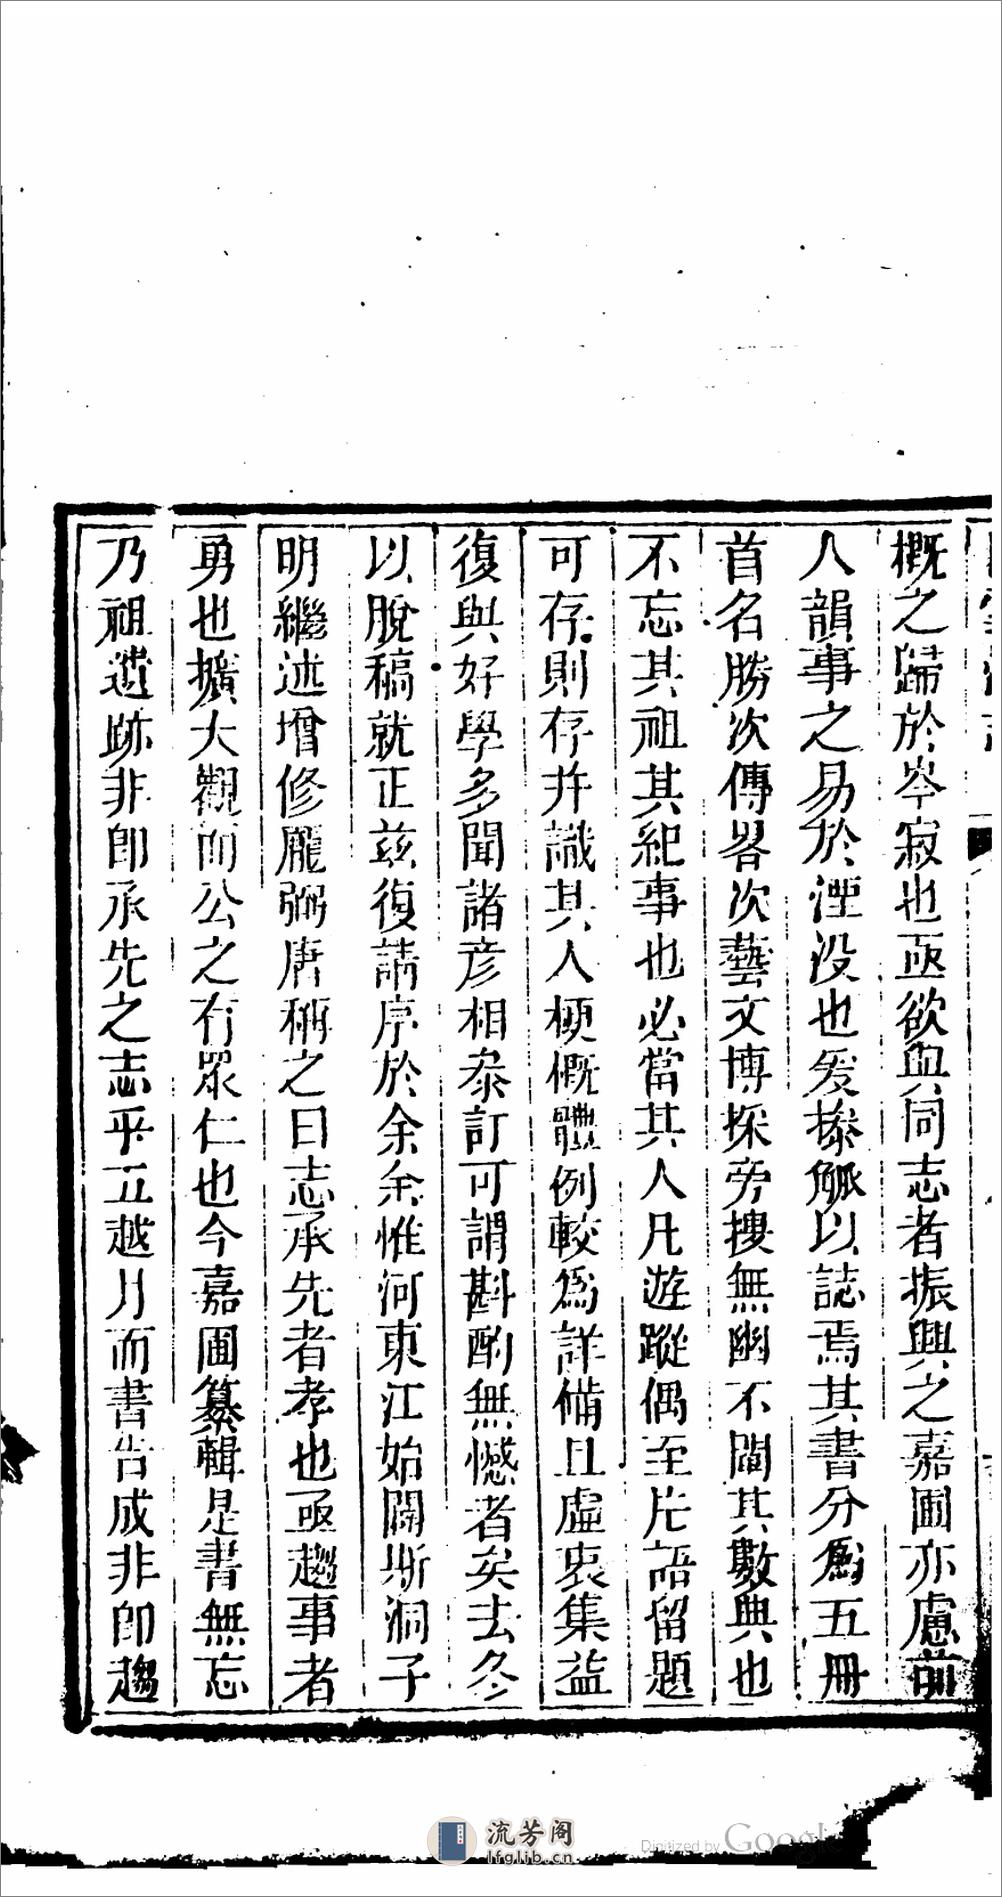 概之歸於岑寂也亟欲與同志者振興之嘉圃亦慮前
人韻事之易於湮沒也爰搽觚以誌焉其書分爲五冊
首名勝次傳畧次藝文博採旁搜無幽不闡其數典也
不忘其祖其紀事也必當其人凡遊蹤偶至片語留題
可存則存并識其人梗概體例較爲詳備且虛衷集益
復與好學多聞諸彥相叅訂可謂斟酌無憾者矣去冬
以脫稿就正茲復請序於余余惟河東江始開斯洞子
明繼述增修龐弼唐稱之曰志承先者孝也亟趨事者
勇也擴大觀而公之有眾仁也今嘉圃纂輯是書無忘
乃祖遺跡非卽承先之志乎五越月而書告成非卽趨
流芳阁
lfglib.cn
Digitized by Google